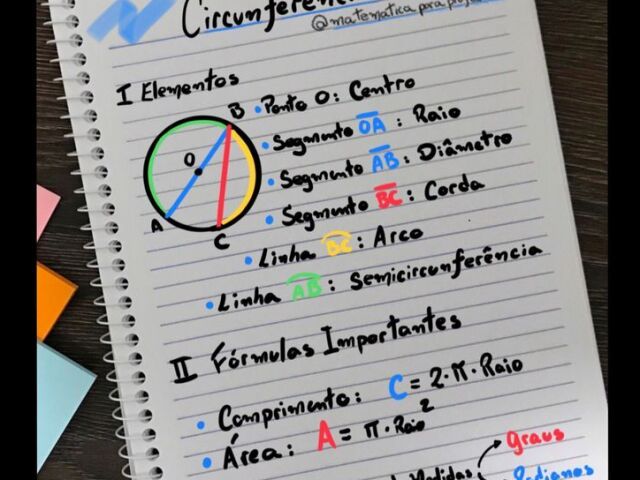 Circunferênc
@matematica para
I Elementos
B
O
A
C
• Ponto O: Centro
• Segmento OA: Raio
• Segmento AB: Diâmetro
• Segmento BC: Corda
• Linha BC: Arco
• Linha AB: Semicircunferência
II Fórmulas Importantes
• Comprimento: C = 2·π·Raio
• Área: A = π·Raio²
Medidas
graus
Radianos